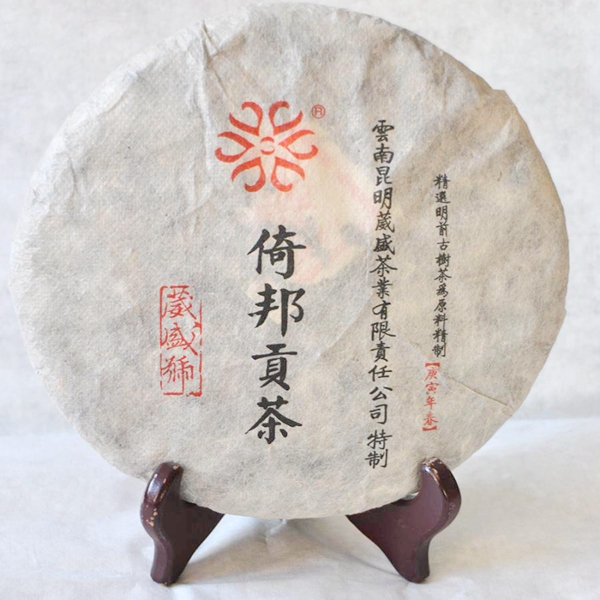 精選明前古樹茶為原料精制【庚寅年春】
雲南昆明葳盛茶業有限責任公司 特制
®
倚邦貢茶
葳盛號